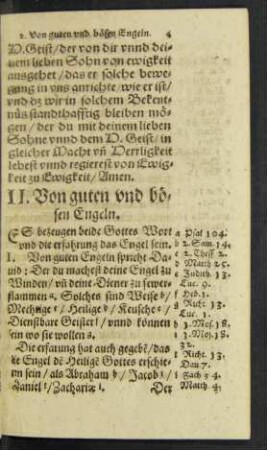 2. Von guten vnd bösen Engeln. 4
H. Geist/der von dir vnnd dei-
nem lieben Sohn von ewigkeit
ausgehet/das er solche bewe-
gung in vns anrichte/wie er ist/
vnd dz wir in solchem Bekent-
nüs standthafftig bleiben mö-
gen/der du mit deinem lieben
Sohne vnnd dem H. Geist/in
gleicher Macht vn̄ Herrligkeit
lebest vnnd regierest von Ewig-
keit zu Ewigkeit/Amen.
II. Von guten vnd bö-
sen Engeln.
ES bezeugen beide Gottes Wort
vnd die erfahrung das Engel sein.
1. Von guten Engeln spricht Da-
uid: Der du machest deine Engel zu
Winden/vn̄ deine Diener zu fewer-
flammen a. Solches sind Weise b/
Mechtige c/Heilige d/Keusche e/
Dienstbare Geister f/vnnd können
sein wo sie wollen g.
Die erfarung hat auch gegebē/das
die Engel dē Heiligē Gottes erschie-
nen sein/als Abraham h/Jacob i/
Daniel k/Zacharix l. Der
a Psal 104.
b 2. Sam. 14.
c 2. Thess 2.
d Matth 25.
e Judith. 13.
Luc. 9.
f Heb. 1.
g Richt 13.
Luc. 1.
h 1. Mos. 18.
i 1. Mos. 28.
32.
Richt. 13.
Dan 7.
Matth 4.